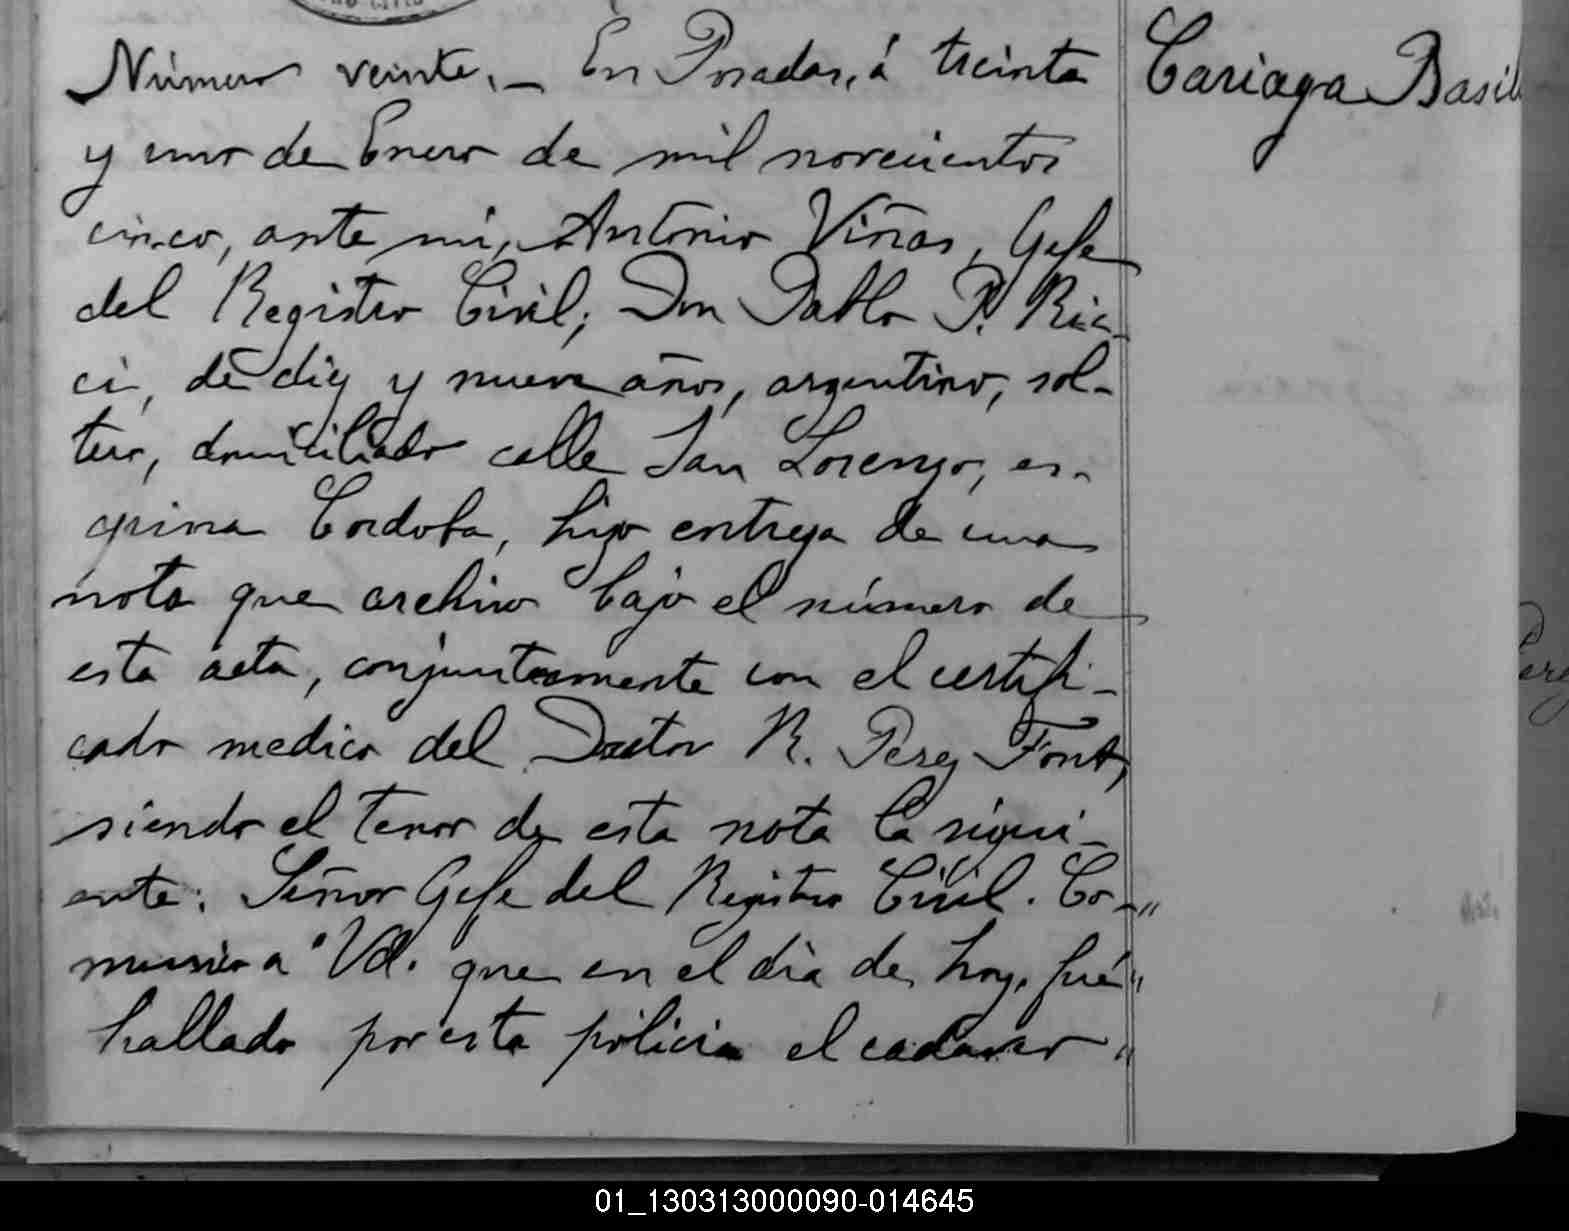 Número veinte. — En Posadas, á treinta
y uno de Enero de mil novecientos
cinco, ante mi, Antonio Viñas, Gefe
del Registro Civil; Don Pablo P. Ric-
ci, de diez y nueve años, argentino, sol-
tero, domiciliado calle San Lorenzo, es-
quina Cordoba, hizo entrega de una
nota que archivo bajo el número de
esta acta, conjuntamente con el certifi-
cado medico del Doctor R. Perez Font,
siendo el tenor de esta nota la sigui-
ente: Señor Gefe del Registro Civil. Co-"
munico a Vd. que en el dia de hoy, fué"
hallado por esta policia el cadaver"
Cariaga Basil
01_130313000090-014645